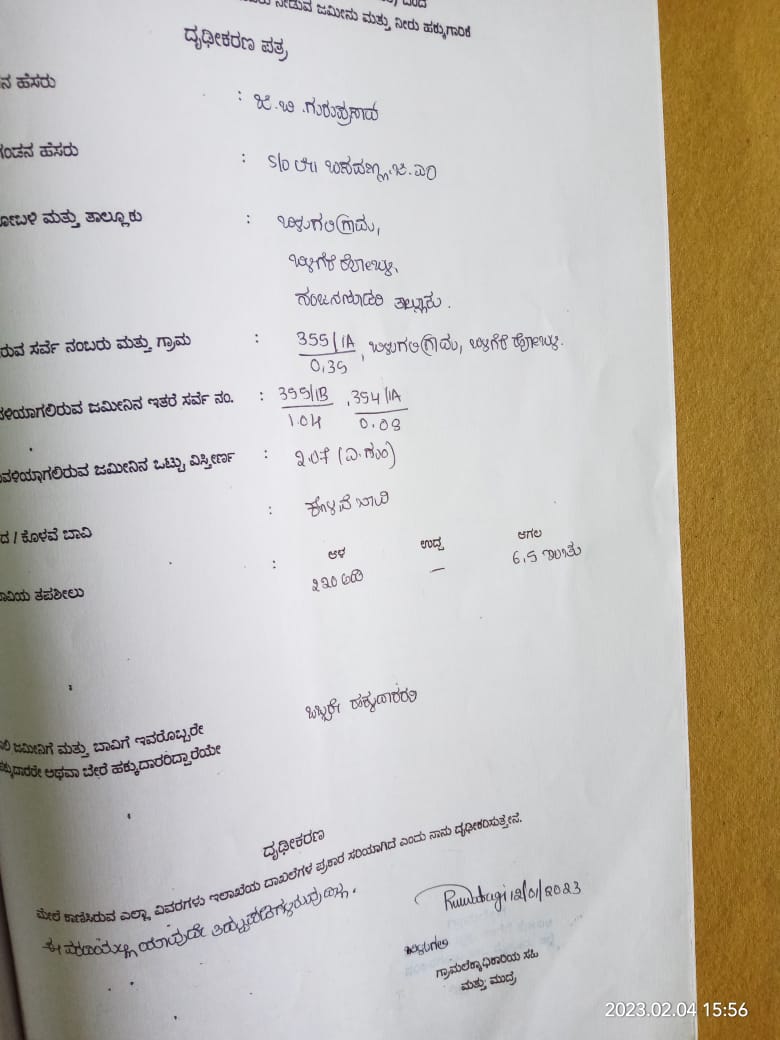 ನೀಡುವ ಜಮೀನು ಮತ್ತು ನೀರು ಹಕ್ಕುಗಾರಿಕೆ
ದೃಢೀಕರಣ ಪತ್ರ
ನ ಹೆಸರು : ಜಿ.ಬಿ.ಗುರುಪ್ರಸಾದ
ಗಂಡನ ಹೆಸರು : S/o ಬಸವಣ್ಣ.ಜಿ.ಎಂ
ೋಬಳಿ ಮತ್ತು ತಾಲ್ಲೂಕು : ಗ್ರಾಮ,
ಹೋಬಳಿ,
ನಂಜನಗೂಡು ತಾಲ್ಲೂಕು.
ರುವ ಸರ್ವೆ ನಂಬರು ಮತ್ತು ಗ್ರಾಮ : 355/1A
0.35 , ಗ್ರಾಮ, ಹೋಬಳಿ.
ವಳಿಯಾಗಲಿರುವ ಜಮೀನಿನ ಇತರೆ ಸರ್ವೆ ನಂ. : 355/1B , 354/1A
1.04 0.08
ವಳಿಯಾಗಲಿರುವ ಜಮೀನಿನ ಒಟ್ಟು ವಿಸ್ತೀರ್ಣ : 2.07 (ಎ.ಗುಂ)
ದ / ಕೊಳವೆ ಬಾವಿ : ಕೊಳವೆ ಬಾವಿ
ಆಳ ಉದ್ದ ಅಗಲ
ಾವಿಯ ತಪಶೀಲು : 220 ಅಡಿ — 6.5 ಇಂಚು
ಜಮೀನಿಗೆ ಮತ್ತು ಬಾವಿಗೆ ಇವರೊಬ್ಬರೇ ಒಬ್ಬರೇ ಹಕ್ಕುದಾರರು
ಹಕ್ಕುದಾರರೇ ಅಥವಾ ಬೇರೆ ಹಕ್ಕುದಾರರಿದ್ದಾರೆಯೇ
ದೃಢೀಕರಣ
ಮೇಲೆ ಕಾಣಿಸಿರುವ ಎಲ್ಲಾ ವಿವರಗಳು ಇಲಾಖೆಯ ದಾಖಲೆಗಳ ಪ್ರಕಾರ ಸರಿಯಾಗಿದೆ ಎಂದು ನಾನು ದೃಢೀಕರಿಸುತ್ತೇನೆ.
ಈ ಯಾವುದೇ ತಿದ್ದುಪಡಿಗಳಿರುವುದಿಲ್ಲ.
12/01/2023
ಗ್ರಾಮಲೆಕ್ಕಾಧಿಕಾರಿಯ ಸಹಿ
ಮತ್ತು ಮುದ್ರೆ
2023.02.04 15:56